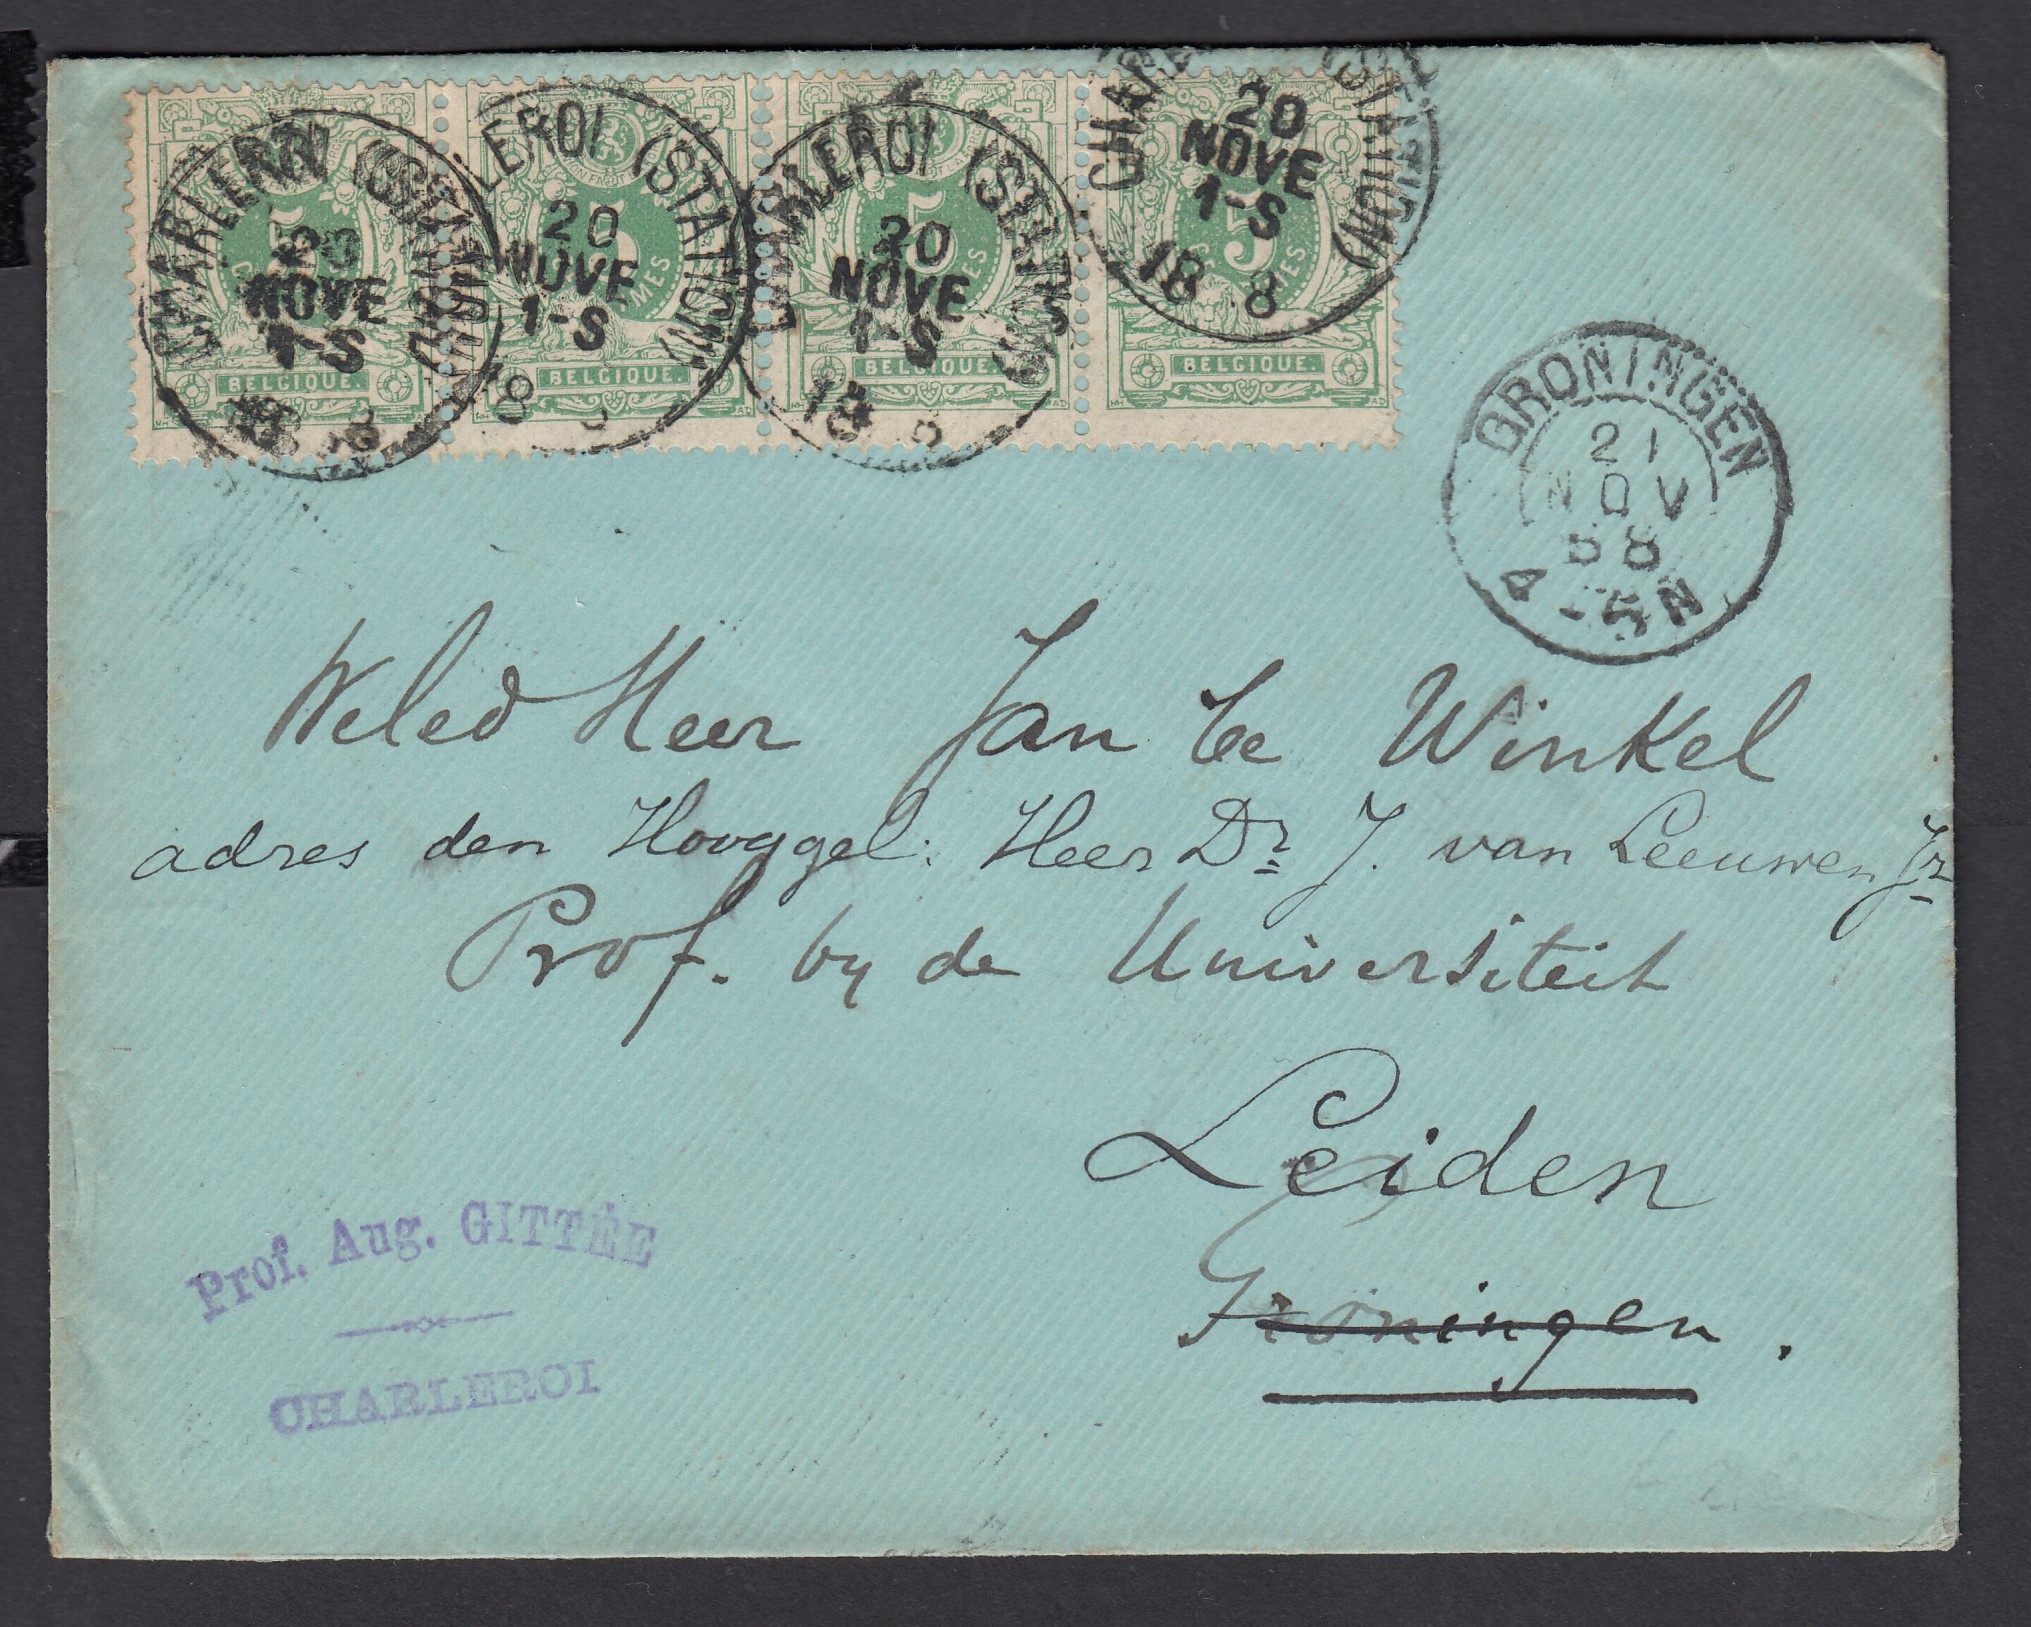 CHARLEROI (STATION)
20
NOVE
1-S
18 8
CHARLEROI (STATION)
20
NOVE
1-S
18 8
CHARLEROI (STATION)
20
NOVE
1-S
18 8
CHARLEROI (STATION)
20
NOVE
1-S
18 8
5
5
5
5
BELGIQUE.
BELGIQUE.
BELGIQUE.
BELGIQUE.
GRONINGEN
21
NOV
88
4-5N
Weled Heer Jan te Winkel
adres den Hooggel. Heer Dr J. van Leeuwen Jr
Prof. by de Universiteit
Leiden
Groningen.
Prof. Aug. GITTÉE
CHARLEROI